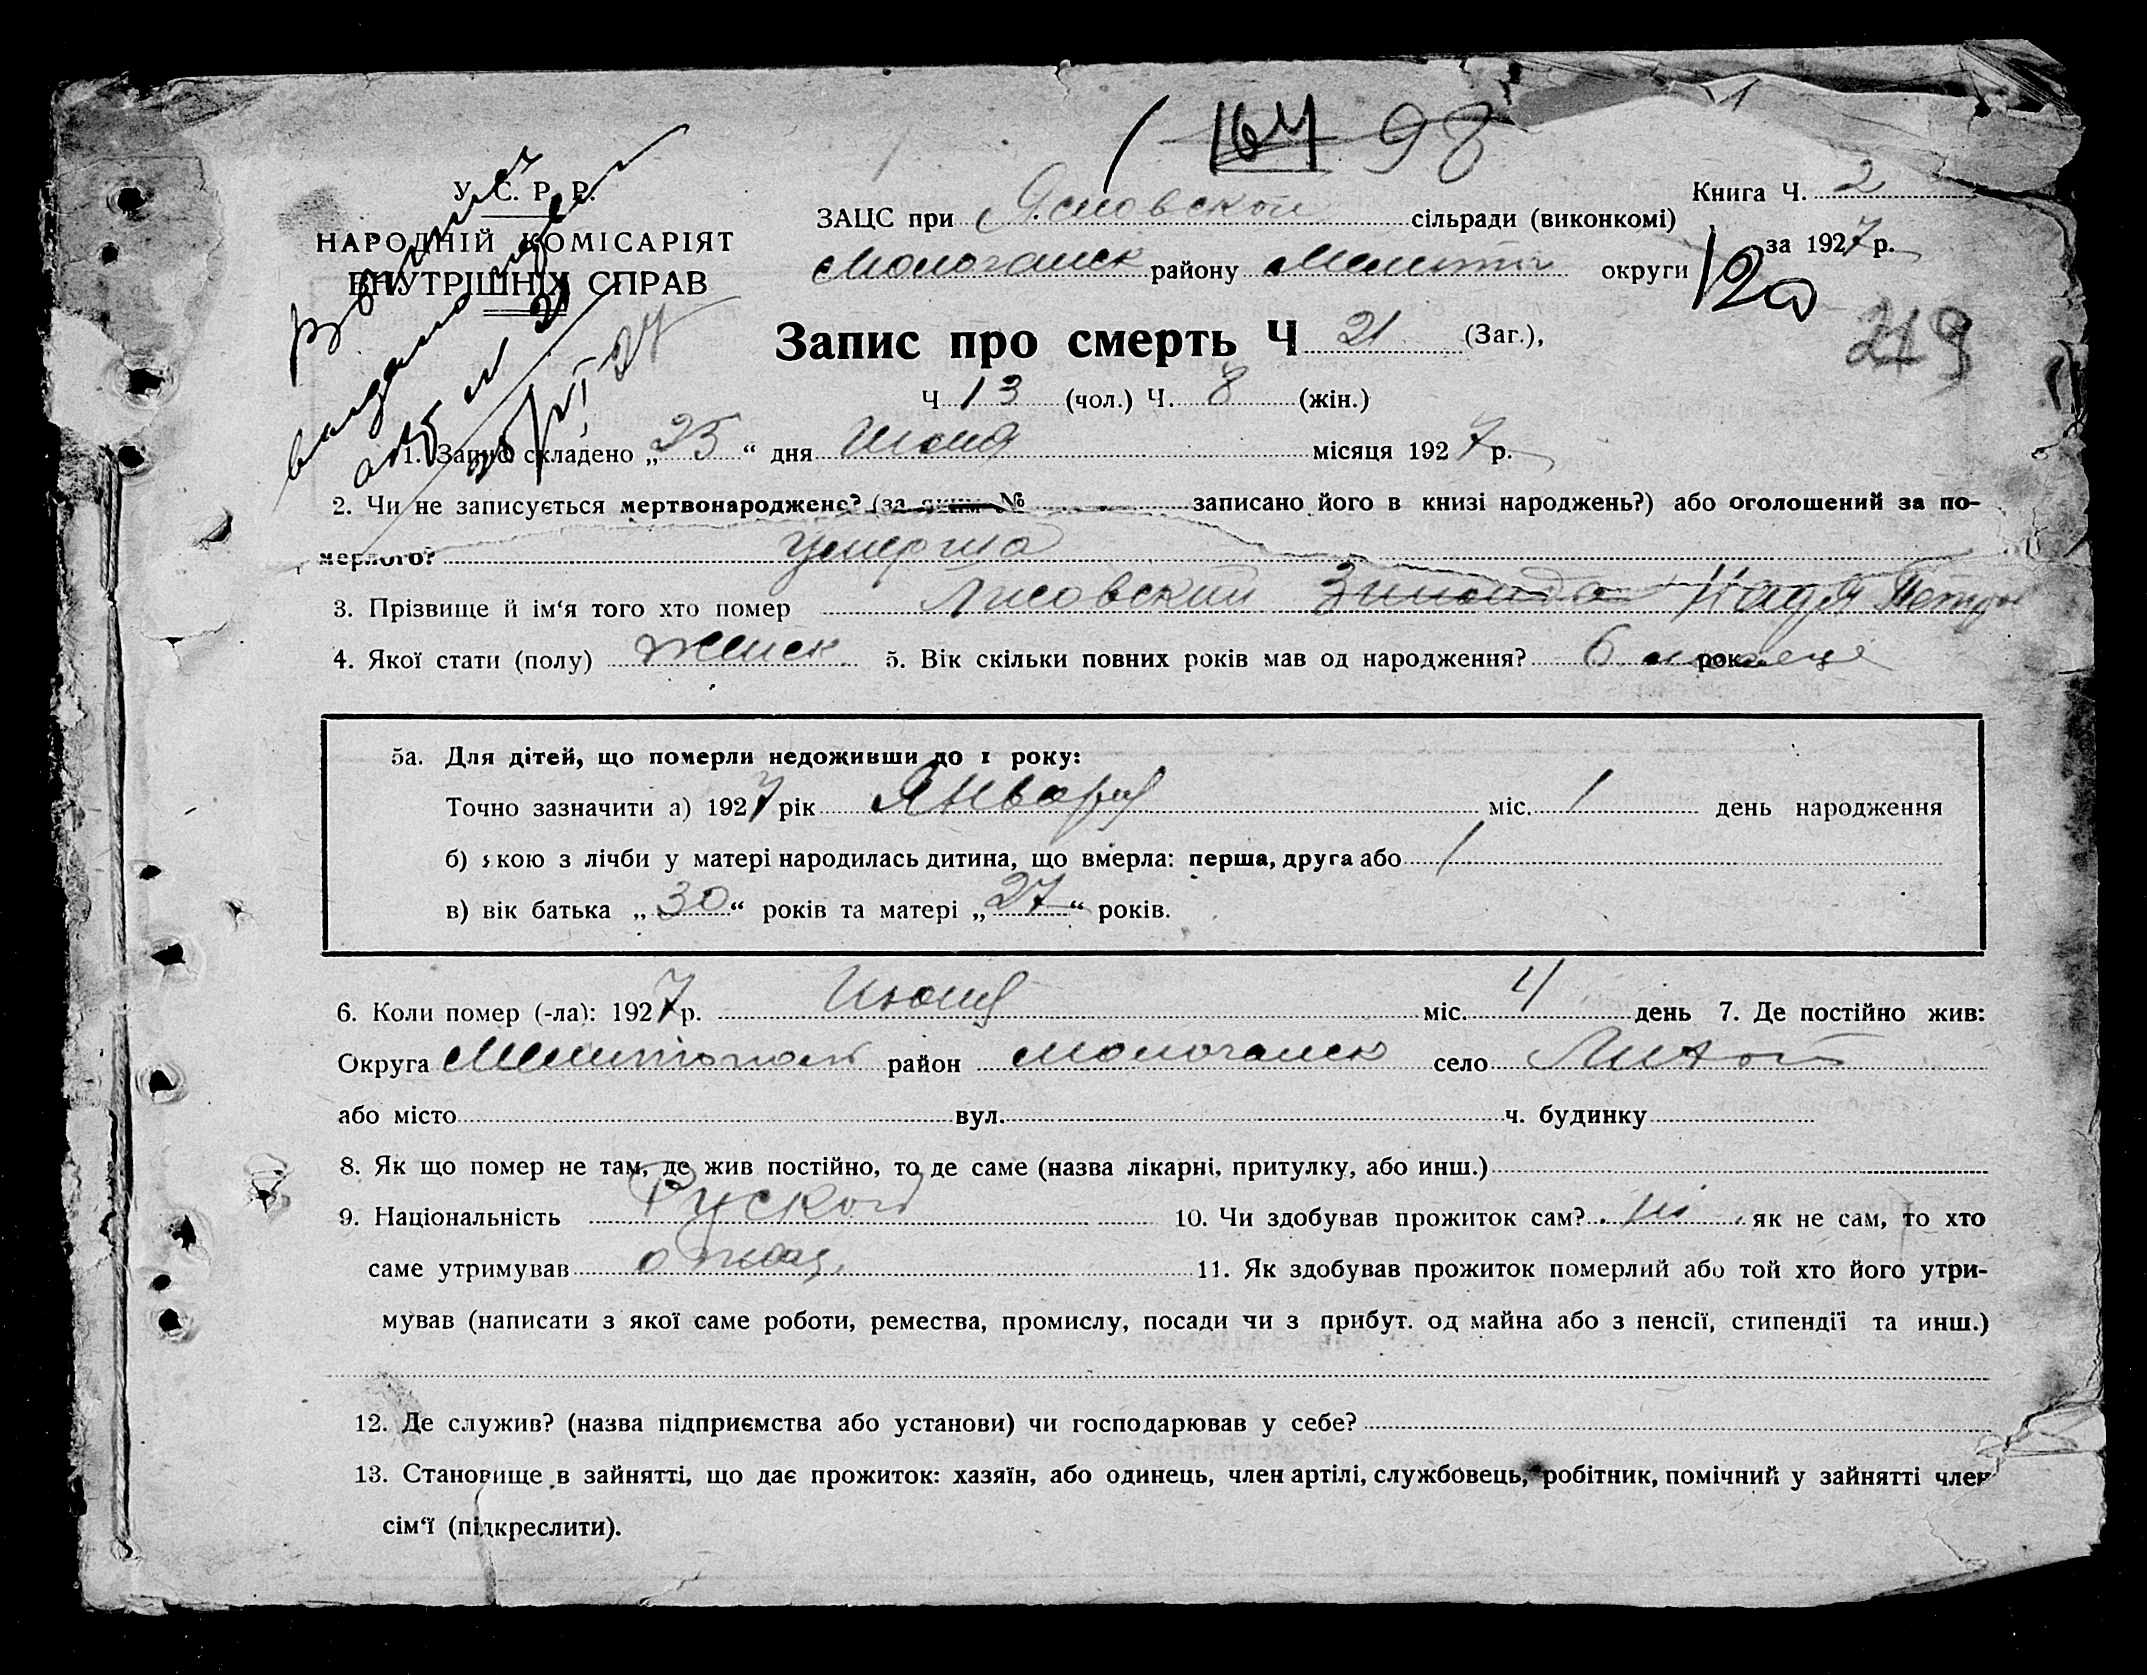 164 98
У. С. Р. Р.
НАРОДНІЙ КОМІСАРІЯТ
ВНУТРІШНІХ СПРАВ
Книга Ч. 2
за 1927 р.
ЗАЦС при Ясновской сільради (виконкомі)
Молочанск району Мелитоп округи
120
219
Запис про смерть Ч 21 (Заг.),
Ч 13 (чол.) Ч. 8 (жін.)
1. Запис складено „25“ дня Июня місяця 1927 р.
2. Чи не записується мертвонароджене? (за яким № записано його в книзі народжень?) або оголошений за по-
мерлого? умерша
3. Прізвище й ім‘я того хто помер Лисовский Зинаида Надя Петр
4. Якої стати (полу) Женск 5. Вік скільки повних років мав од народження? 6 месяце рок
5а. Для дітей, що померли недоживши до 1 року:
Точно зазначити а) 1927 рік Январ міс. 1 день народження
б) якою з лічби у матері народилась дитина, що вмерла: перша, друга або 1
в) вік батька „30“ років та матері „27“ років.
6. Коли помер (-ла): 1927 р. Июня міс. 4 день 7. Де постійно жив:
Округа Мелитополь район Молочанск село
або місто вул. ч. будинку
8. Як що помер не там, де жив постійно, то де саме (назва лікарні, притулку, або инш.)
9. Національність Руской 10. Чи здобував прожиток сам? ні як не сам, то хто
саме утримував отец 11. Як здобував прожиток померлий або той хто його утри-
мував (написати з якої саме роботи, ремества, промислу, посади чи з прибут. од майна або з пенсії, стипендії та инш.)
12. Де служив? (назва підприємства або установи) чи господарював у себе?
13. Становище в зайнятті, що дає прожиток: хазяїн, або одинець, член артілі, службовець, робітник, помічний у зайнятті член
сім‘ї (підкреслити).